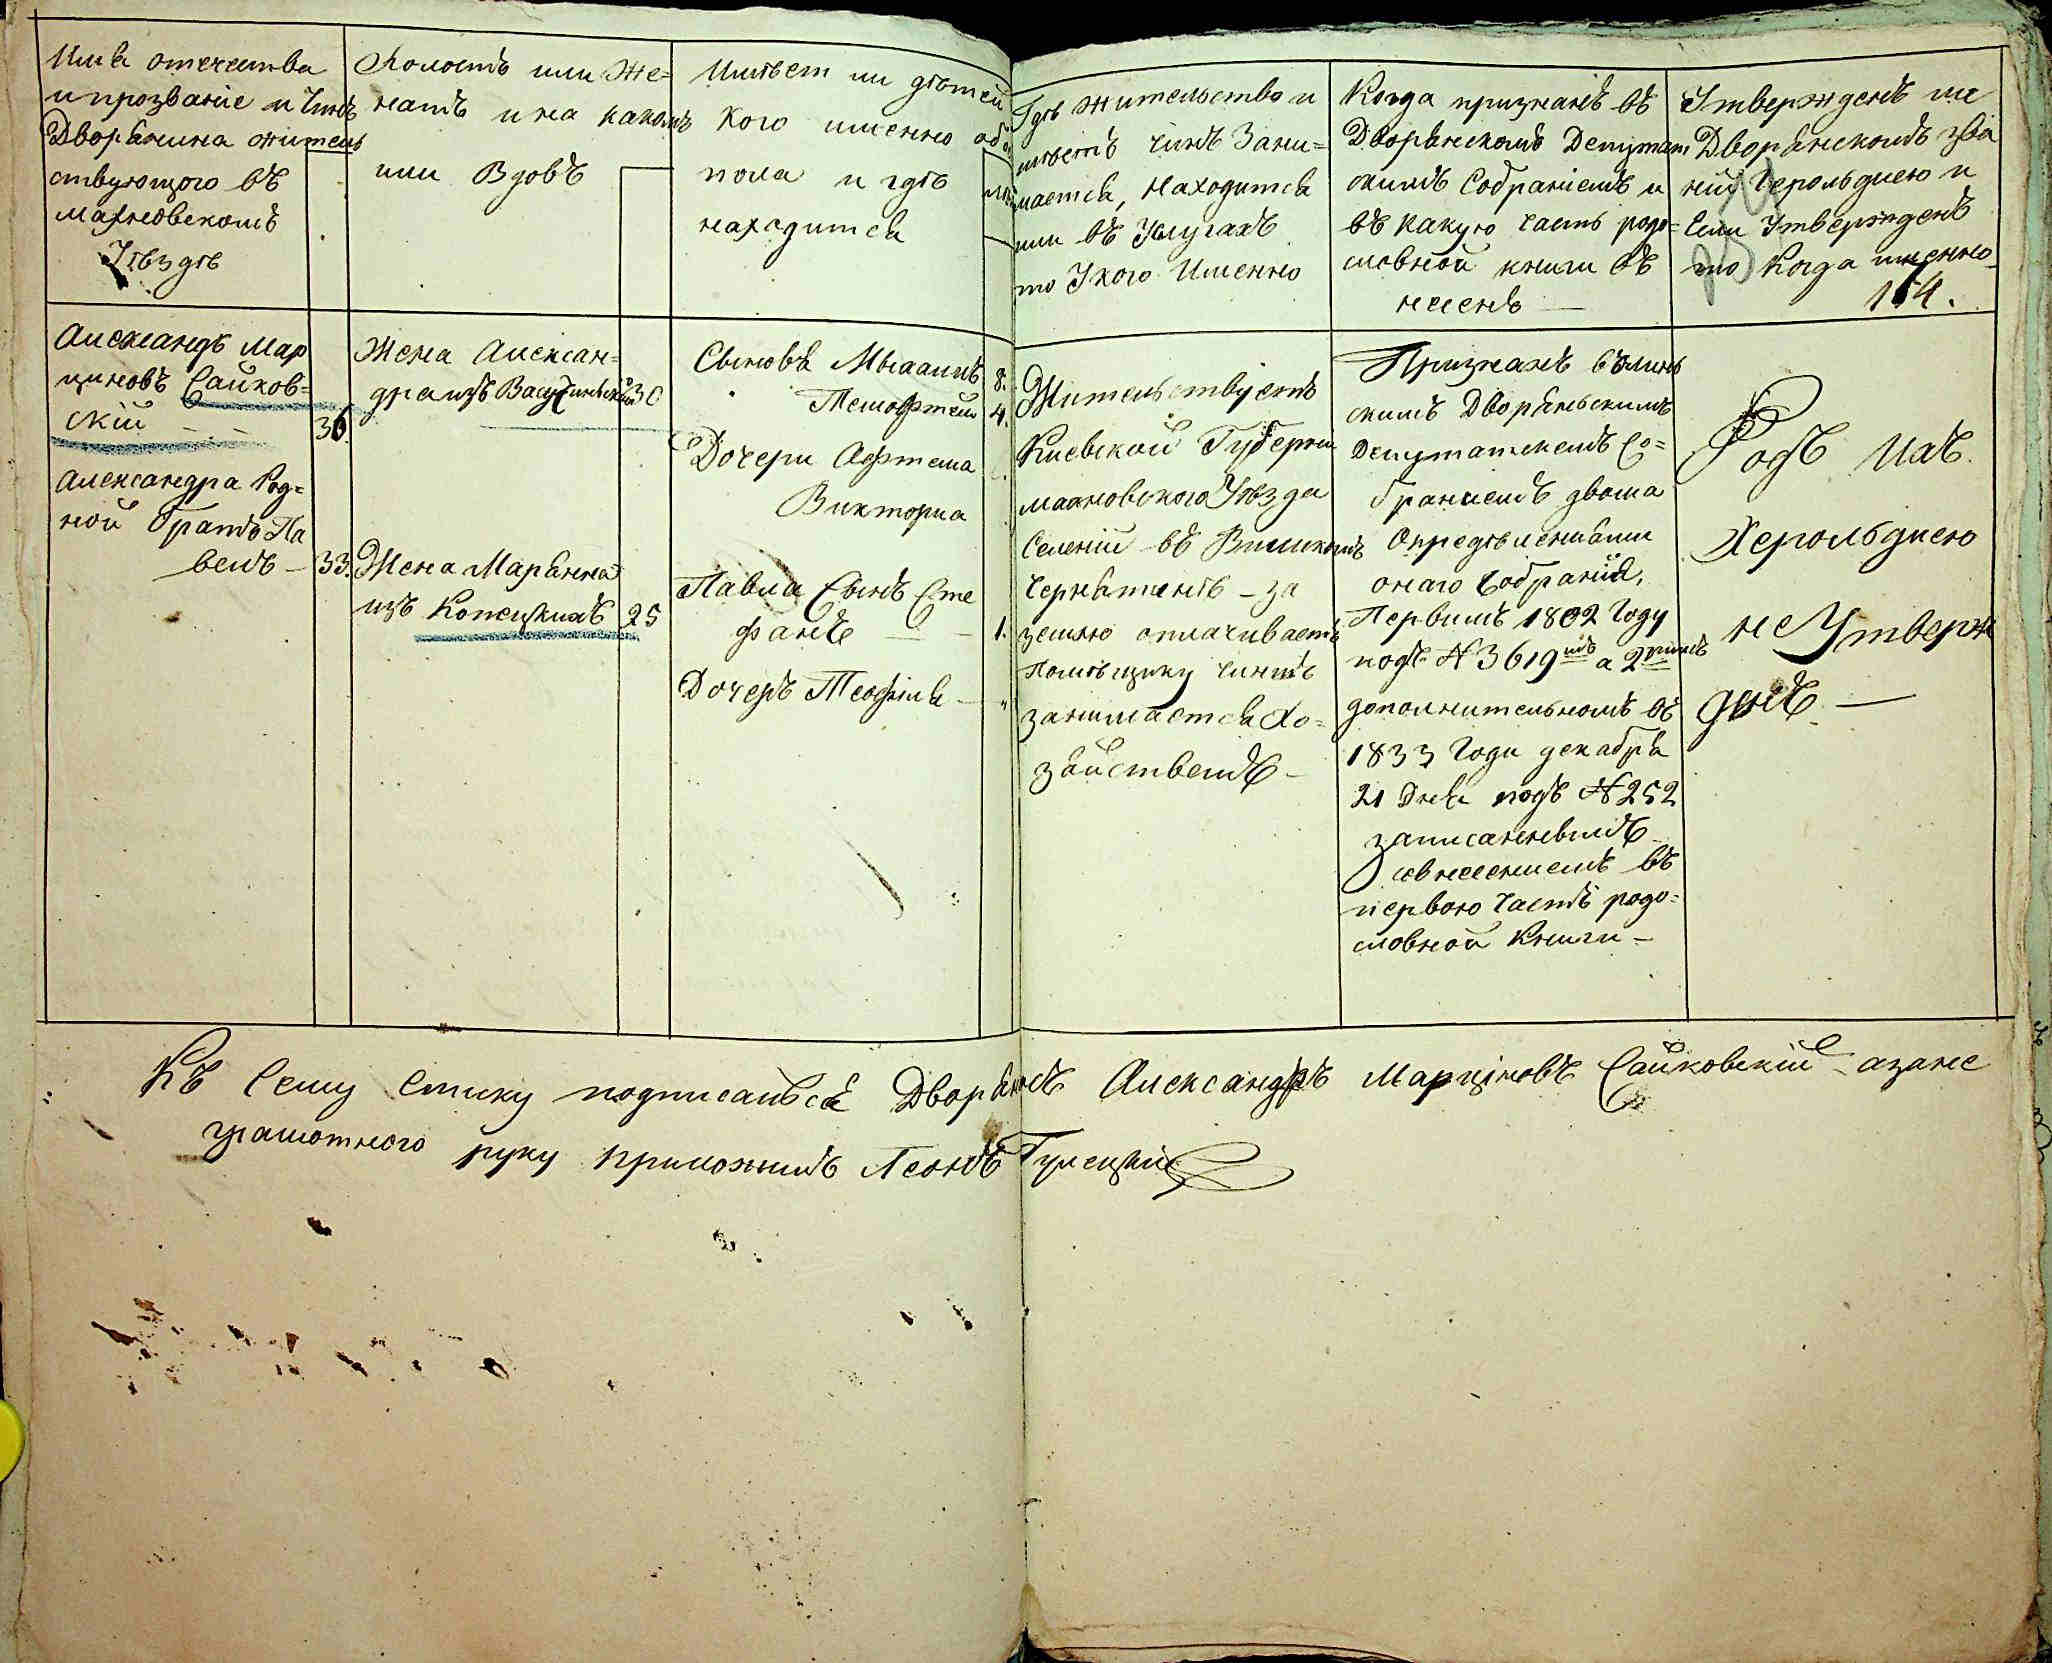 Имя отечества
и прозвание и Чинъ
Дворянина житель
ствующого въ
махновскомъ
Уѣздѣ
Холостъ или Же=
натъ и на какомъ
или Вдовъ
Имѣет ли дѣтей
кого именно обоя
пола и где
находится
Гдѣ жительство и
имѣетъ чимъ Зани=
мается, Находится
или въ Услугахъ
то У кого Именно
Когда признанъ въ
Дворянскомъ Депутат
скимъ Собраниемъ и
въ какую часть родо=
словной книги въ
несенъ —
Утвержденъ ли
Дворянскомъ зва
нии Герольдиею и
Если Утвержденъ
то Когда именно
154.
Александъ Мар
циновъ Сайков=
скій - - - 36
Александра Род=
ной братъ Па
велъ — 33.
Жена Алексан=
дра изъ 30
Жена Маріянна
изъ Копецкихъ 25
Сыновя 8.
4.
Дочери
Викториа
Павла Сынъ Сте
фанъ — 1.
Дочеръ Теофіля —
Жительствуетъ
Киевской Губерни
махновского Уѣзда
Селеніи въ
— за
землю оплачиваетъ
Помѣщику чиншъ
занимается Хо=
зяйствомъ —
Признанъ
скимъ Дворяньскимъ
Депутатскемъ Со=
браниемъ двома
Опредѣлениями
онаго Собраниа,
Первимъ 1802 Году
подъ N 3619 имъ а 2
дополнительномъ въ
1833 Годи декабря
21 Дня подъ N 252
записаннымъ
совнесениемъ въ
первою частъ родо=
словной Книги —
Родъ Ихъ
Херольдиею
не Утверж
дѣнъ —
Къ Сему Списку подписался Дворянинъ Александръ Марцiновъ Сайковскій азане
грамотного руку приложилъ Леонъ